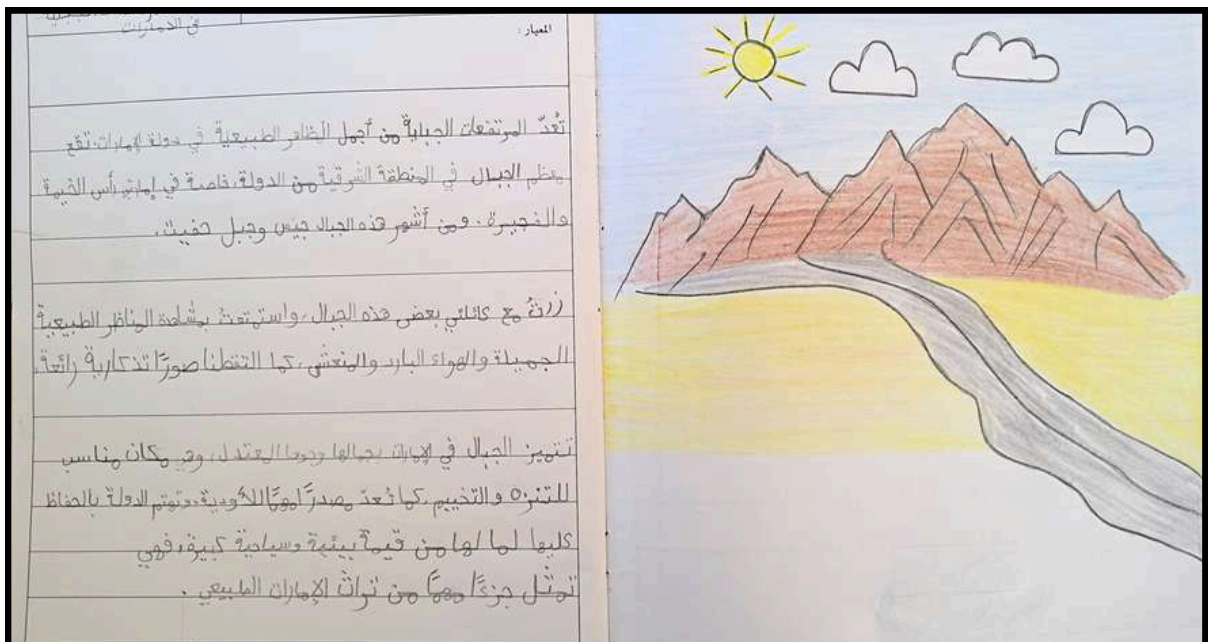 في الامارات
المعيار :
تُعدّ المرتفعات الجبلية من أجمل المظاهر الطبيعية في دولة الإمارات، تقع
معظم الجبال في المنطقة الشرقية من الدولة، خاصة في إمارتي رأس الخيمة
والفجيرة. ومن أشهر هذه الجبال جيس وجبل حفيت.
زرتُ مع عائلتي بعض هذه الجبال، واستمتعتُ بمشاهدة المناظر الطبيعية
الجميلة والهواء البارد والمنعش، كما التقطنا صورًا تذكارية رائعة.
تتميز الجبال في الإمارات بجمالها وجوها المعتدل، وهي مكان مناسب
للتنزه والتخييم، كما تُعدّ مصدرًا مهمًا للأودية، وتهتم الدولة بالحفاظ
عليها لما لها من قيمة بيئية وسياحية كبيرة، فهي
تمثّل جزءًا مهمًّا من تراث الإمارات الطبيعي.